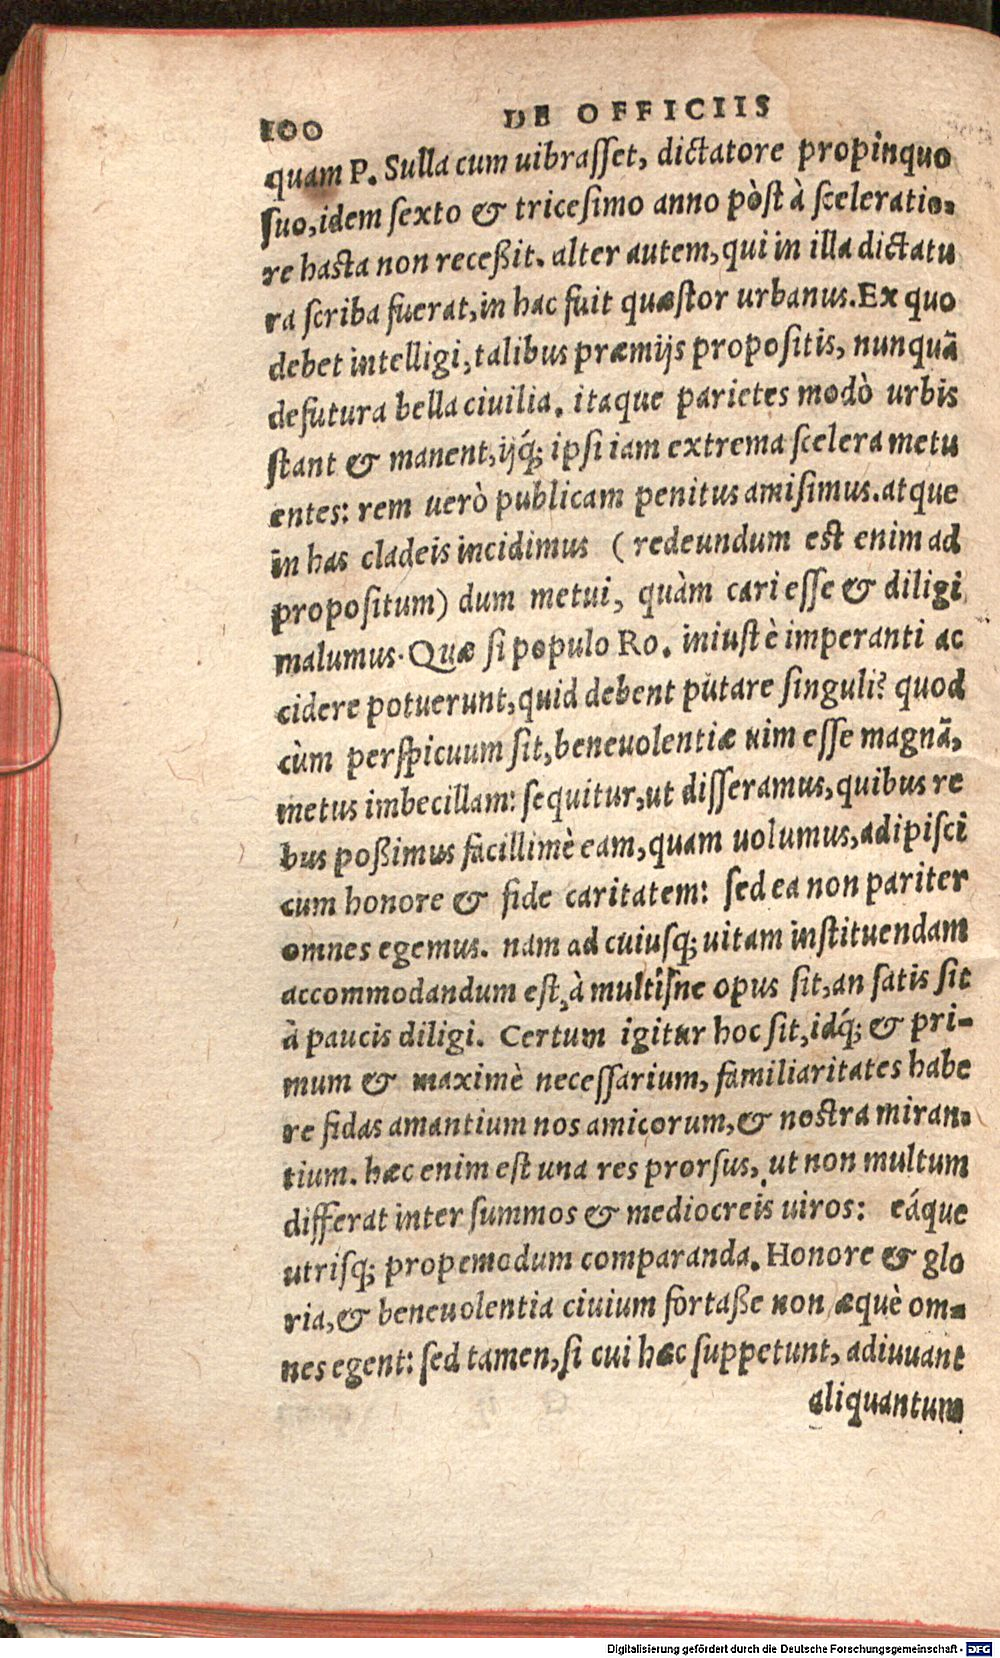 100 DE OFFICIIS
quam P. Sulla cum uibraſſet, dictatore propinquo
ſuo, idem ſexto & triceſimo anno pòſt à ſceleratio-
re haſta non receßit. alter autem, qui in illa dictatu
ra ſcriba fuerat, in hac fuit quæſtor urbanus. Ex quo
debet intelligi, talibus præmijs propoſitis, nunquã
defutura bella ciuilia. itaque parietes modò urbis
ſtant & manent, ijq́; ipſi iam extrema ſcelera metu
entes: rem uerò publicam penitus amiſimus. atque
in has cladeis incidimus (redeundum eſt enim ad
propoſitum) dum metui, quàm cari eſſe & diligi
malumus. Quæ ſi populo Ro. iniuſtè imperanti ac
cidere potuerunt, quid debent putare ſinguli? quod
cùm perſpicuum ſit, beneuolentiæ uim eſſe magnã,
metus imbecillam: ſequitur, ut diſſeramus, quibus re
bus poßimus facillimè eam, quam uolumus, adipiſci
cum honore & fide caritatem: ſed ea non pariter
omnes egemus. nam ad cuiuſq; uitam inſtituendam
accommodandum eſt, à multíſne opus ſit, an ſatis ſit
à paucis diligi. Certum igitur hoc ſit, idq́; & pri-
mum & maximè neceſſarium, familiaritates habe
re fidas amantium nos amicorum, & noſtra miran-
tium. hæc enim eſt una res prorſus, ut non multum
differat inter ſummos & mediocreis uiros: eáque
utriſq; propemodum comparanda. Honore & glo
ria, & beneuolentia ciuium fortaße non æquè om-
nes egent: ſed tamen, ſi cui hæc ſuppetunt, adiuuant
aliquantum
Digitalisierung gefördert durch die Deutsche Forschungsgemeinschaft - DFG